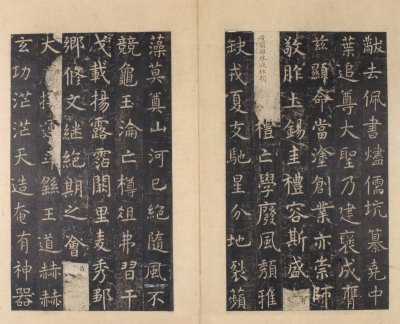 黻去佩書燼儒坑纂堯中
葉追尊大聖乃建褒成膺
茲顯命當塗創業亦崇師
敬胙土錫圭禮容斯盛
禮亡學廢風頹雅
缺戎夏交馳星分地裂蘋
藻莫奠山河已絕隨風不
競龜玉淪亡樽俎弗習干
戈載揚露霑闕里麥秀鄒
鄉修文繼絕期之會
大運率繇王道赫赫
玄功茫茫天造奄有神器